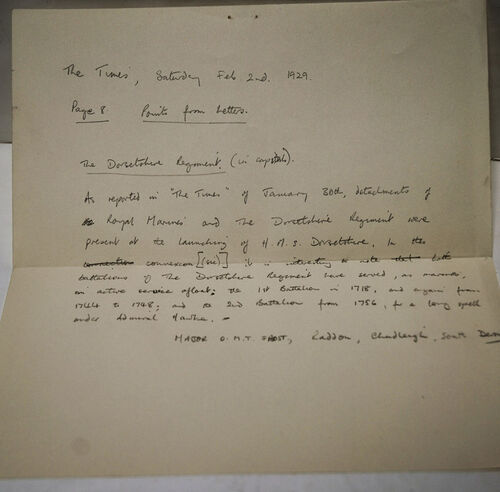 The Times, Saturday Feb 2nd. 1929.
Page 8 Points from Letters.
The Dorsetshire Regiment. (in capitals).
As reported in "The Times" of January 30th, detachments of
Royal Marines and The Dorsetshire Regiment were
present at the launching of H.M.S. Dorsetshire. In this
connexion [(sic)] it is interesting to note that both
battalions of The Dorsetshire Regiment have served, as marines,
on active service afloat; the 1st Battalion in 1718, and again from
1744 to 1748; and the 2nd Battalion from 1756, for a long spell
under Admiral Hawke. -
MAJOR O.M.T. FROST, Raddon, Chudleigh, South Devon